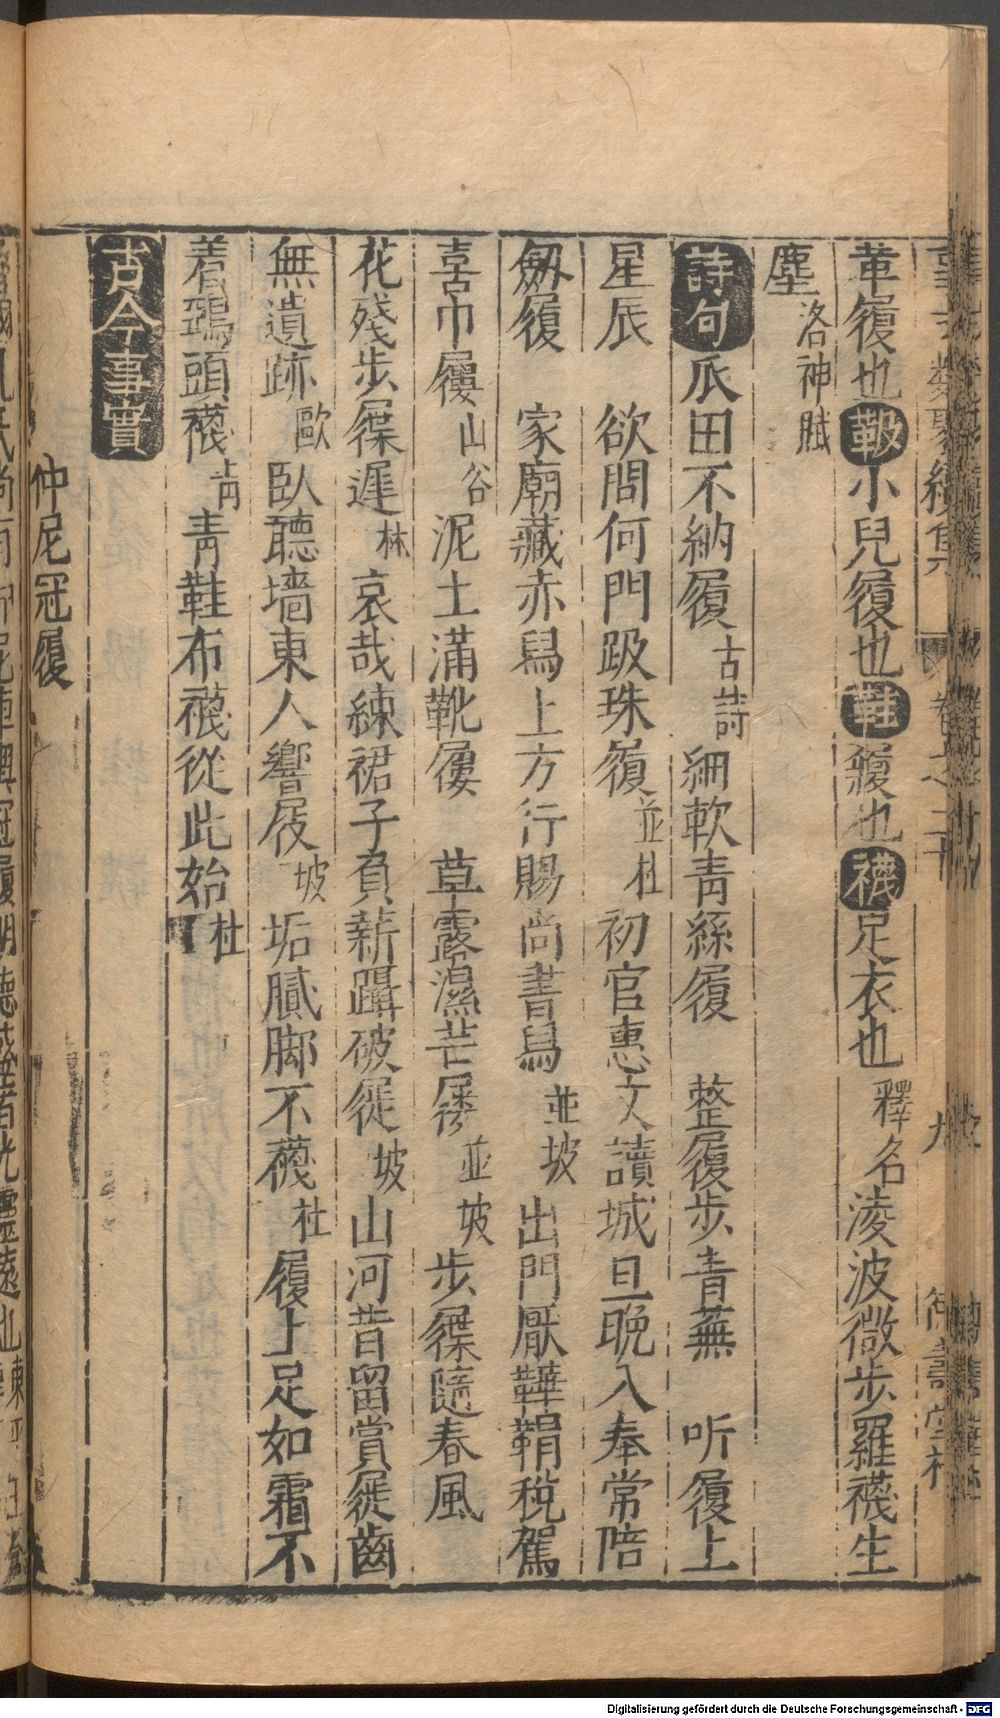 革履也靸小兒履也鞋緩也襪足衣也釋名凌波微步羅襪生
塵洛神賦
詩句瓜田不納履古詩細軟青絲履 整履步青蕪 听履上
星辰 欲問何門趿珠履並杜初官惠文讀城旦晚入奉常陪
劔履 家廟藏赤舄上方行賜尚書舄並坡出門厭鞾鞙稅駕
喜巾屨山谷泥土滿靴屨 草露濕芒屩並坡步屧隨春風
花殘步屧遲林哀哉練裙子負薪躡破屣坡山河昔留賞屣齒
無遺跡歐臥聽墻東人響屐坡垢膩脚不襪杜履上足如霜不
着鵶頭襪上同青鞋布襪從此始杜
古今事實
仲尼冠履
Digitalisierung gefördert durch die Deutsche Forschungsgemeinschaft - DFG